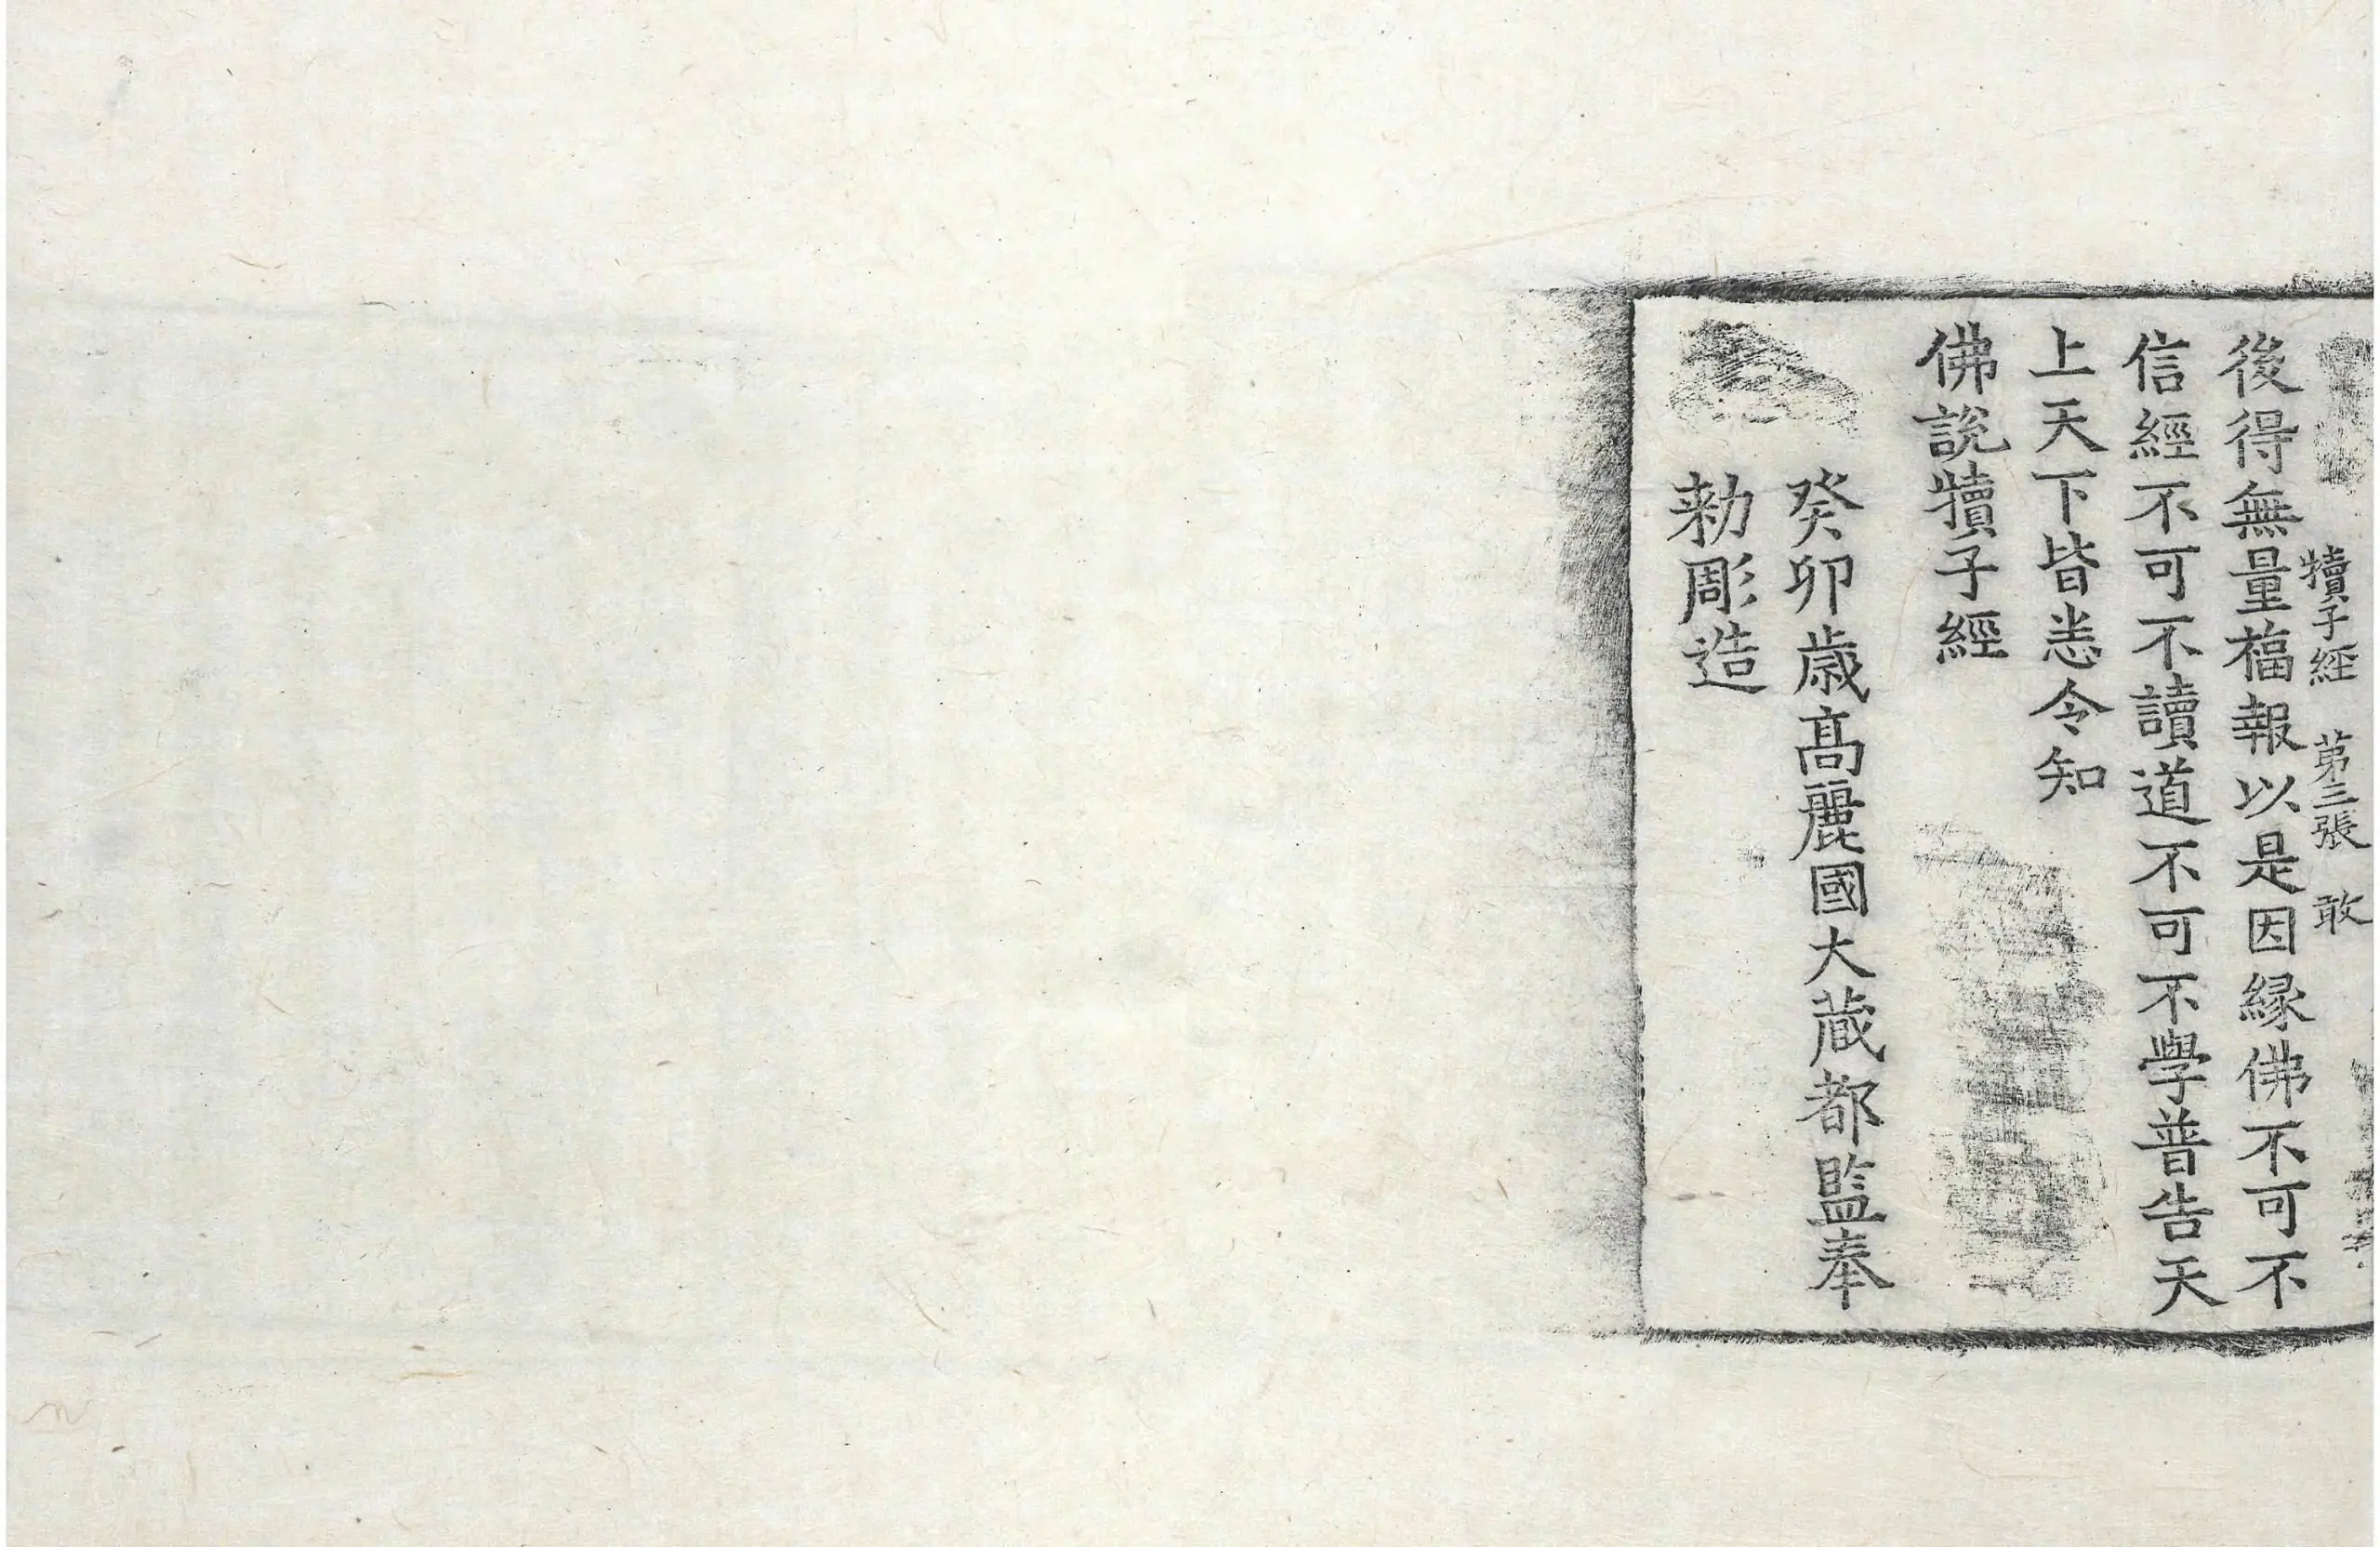 犢子經　第三張　敢
後得無量福報以是因縁佛不可不
信經不可不讀道不可不學普告天
上天下皆悉令知
佛說犢子經
癸卯歳高麗國大藏都監奉
勑彫造